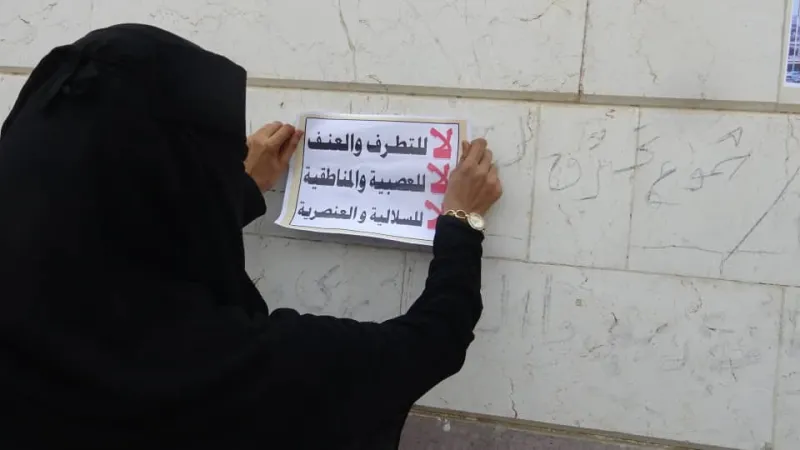 لا للتطرف والعنف
لا للعصبية والمناطقية
لا للسلالية و العنصرية